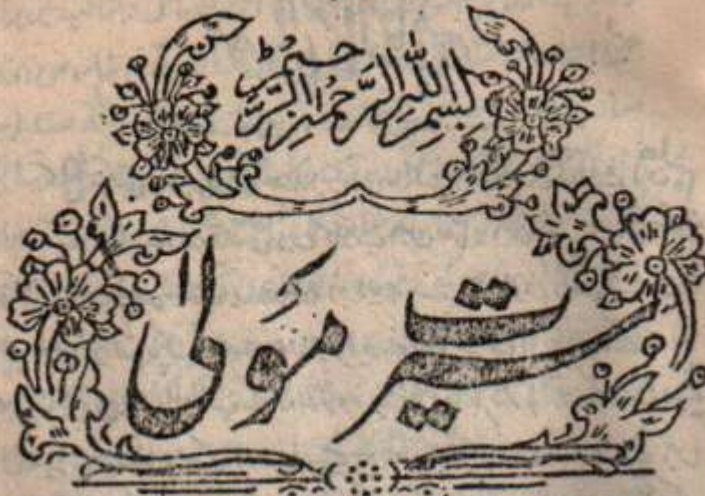 بِسْمِ اللهِ الرَّحْمٰنِ الرَّحِيْمِ
سیرت مَولیٰ